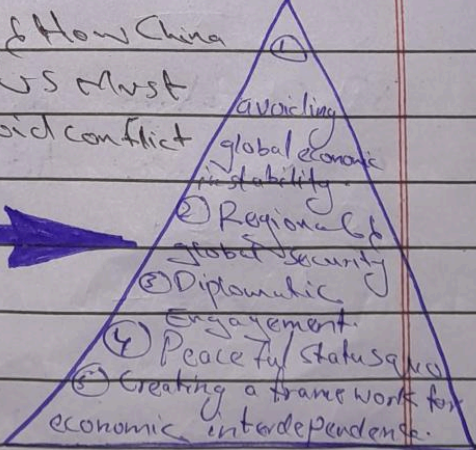 & How China
US Must
oid conflict
①
avoiding
global economic
instability.
② Regional &
global security
③ Diplomatic
Engagement.
④ Peaceful Status quo
⑤ Creating a frame work for
economic interdependence.